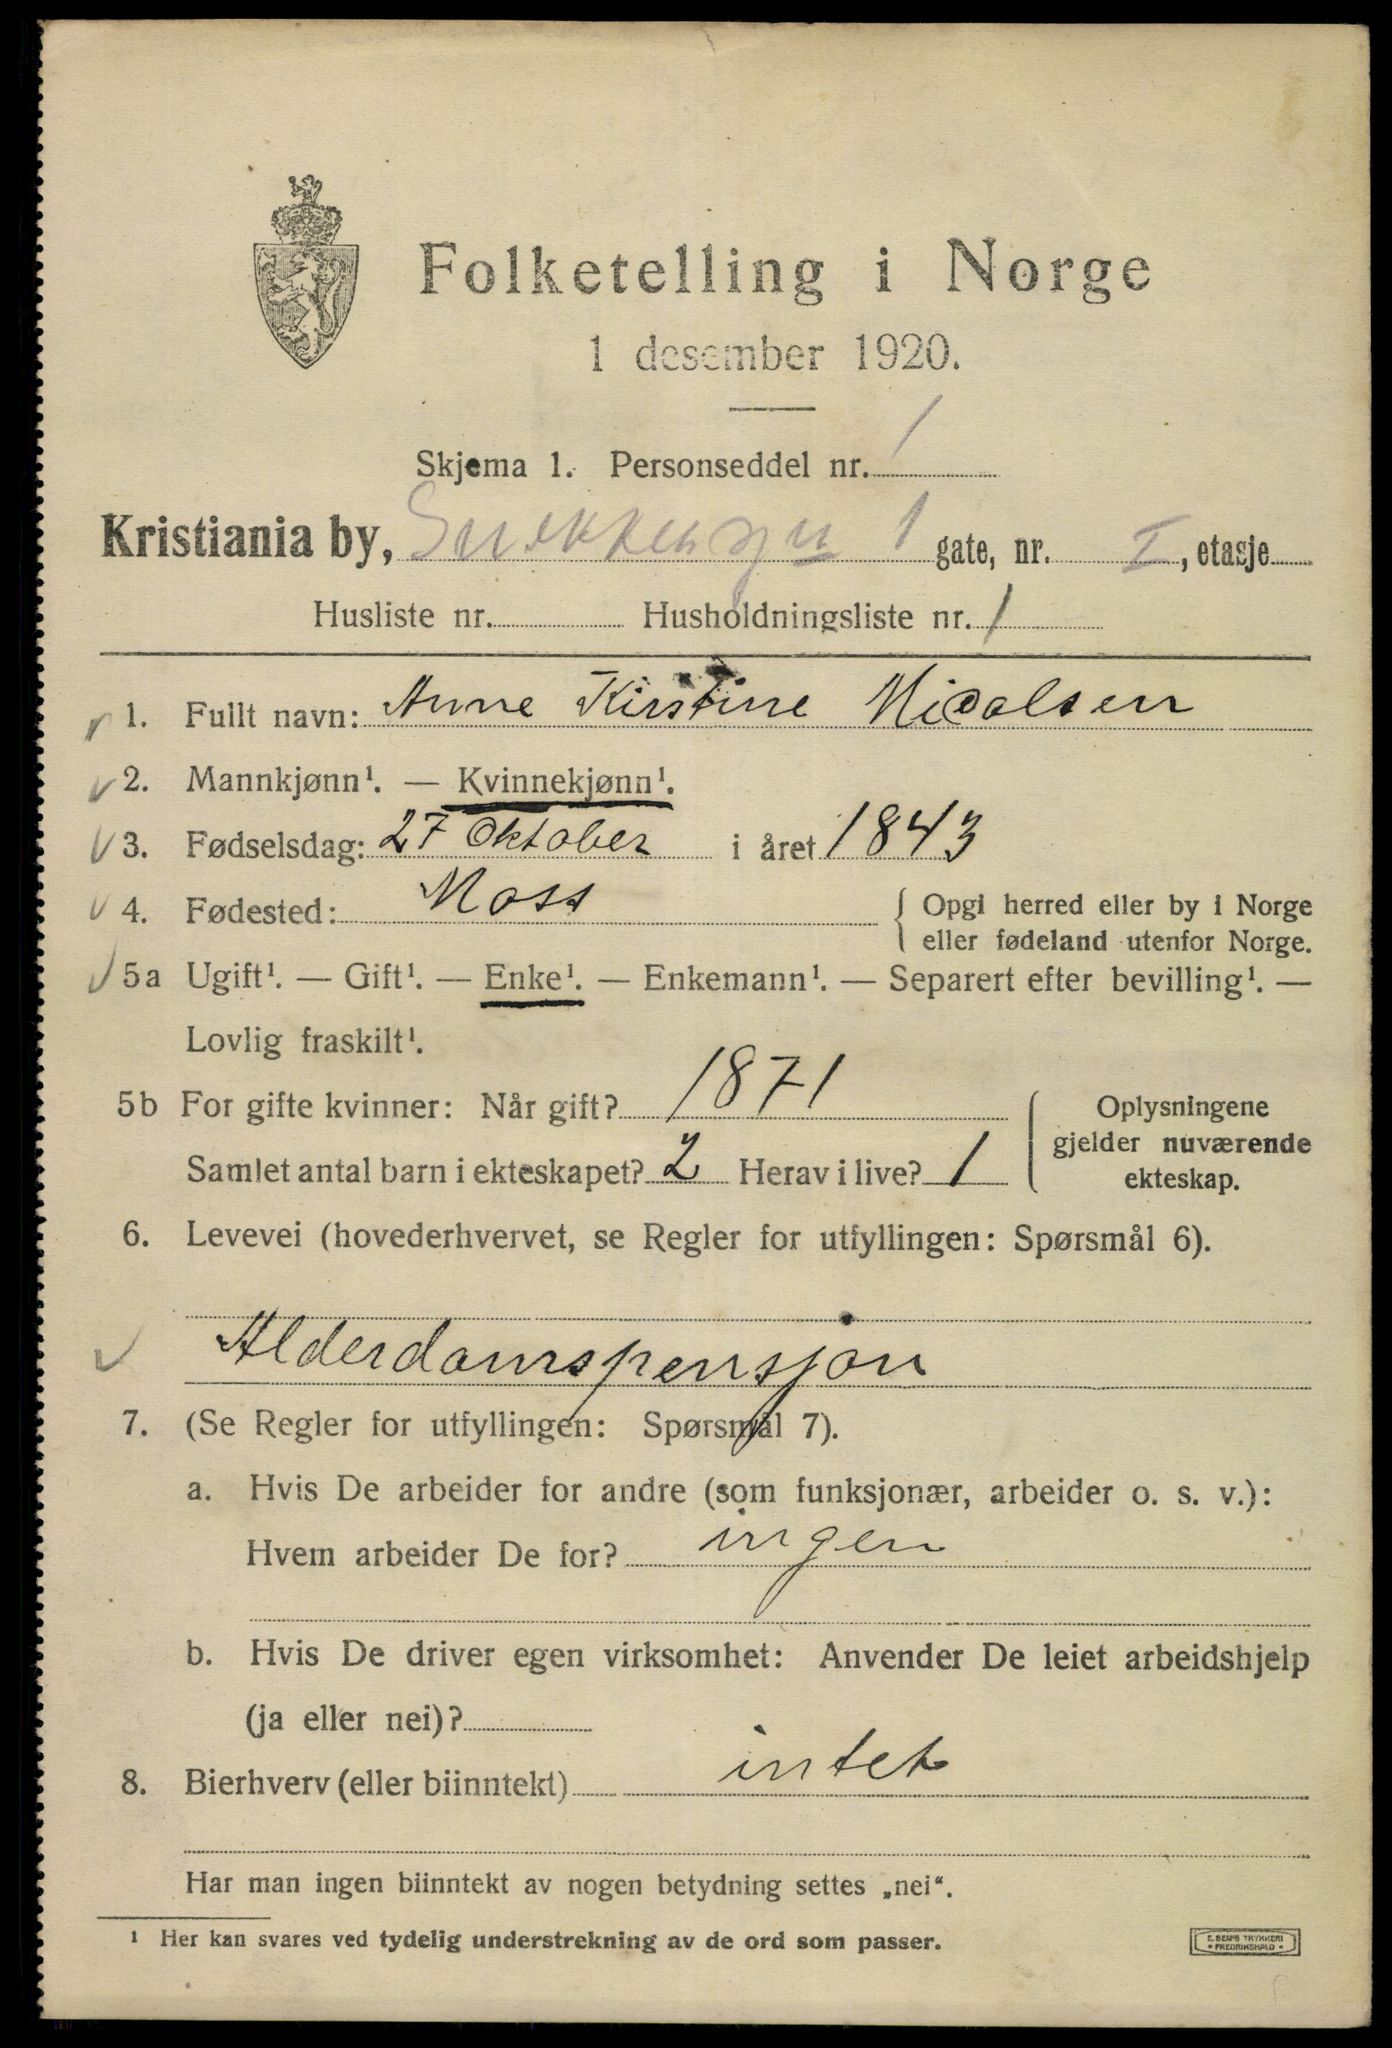 Folketelling i Norge
1 desember 1920.
Skjema 1. Personseddel nr. 1
Kristiania by, 1 gate, nr. I, etasje
Husliste nr. Husholdningsliste nr. 1
1. Fullt navn: Anne Kirstine Nicolsen
2. Mannkjønn¹. — Kvinnekjønn¹.
3. Fødselsdag: 27 Oktober i året 1843
4. Fødested: Moss { Opgi herred eller by i Norge
eller fødeland utenfor Norge.
5a Ugift¹. — Gift¹. — Enke¹. — Enkemann¹. — Separert efter bevilling¹. —
Lovlig fraskilt¹.
5b For gifte kvinner: Når gift? 1871
Samlet antal barn i ekteskapet? 2 Herav i live? 1
Oplysningene
gjelder nuværende
ekteskap.
6. Levevei (hovederhvervet, se Regler for utfyllingen: Spørsmål 6).
Alderdomspensjon
7. (Se Regler for utfyllingen: Spørsmål 7).
a. Hvis De arbeider for andre (som funksjonær, arbeider o. s. v.):
Hvem arbeider De for? ingen
b. Hvis De driver egen virksomhet: Anvender De leiet arbeidshjelp
(ja eller nei)?
8. Bierhverv (eller biinntekt) intet
Har man ingen biinntekt av nogen betydning settes „nei“.
¹ Her kan svares ved tydelig understrekning av de ord som passer.
E. SEM'S TRYKKERI
FREDRIKSHALD